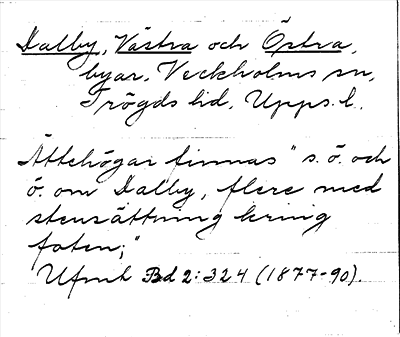 Dalby, Västra och Östra,
byar, Veckholms sn,
Trögds hd, Upps. l.
Ättehögar finnas "s. ö. och
ö. om Dalby, flere med
stensättning kring
foten;"
Ufmt Bd 2: 324 (1877-90).